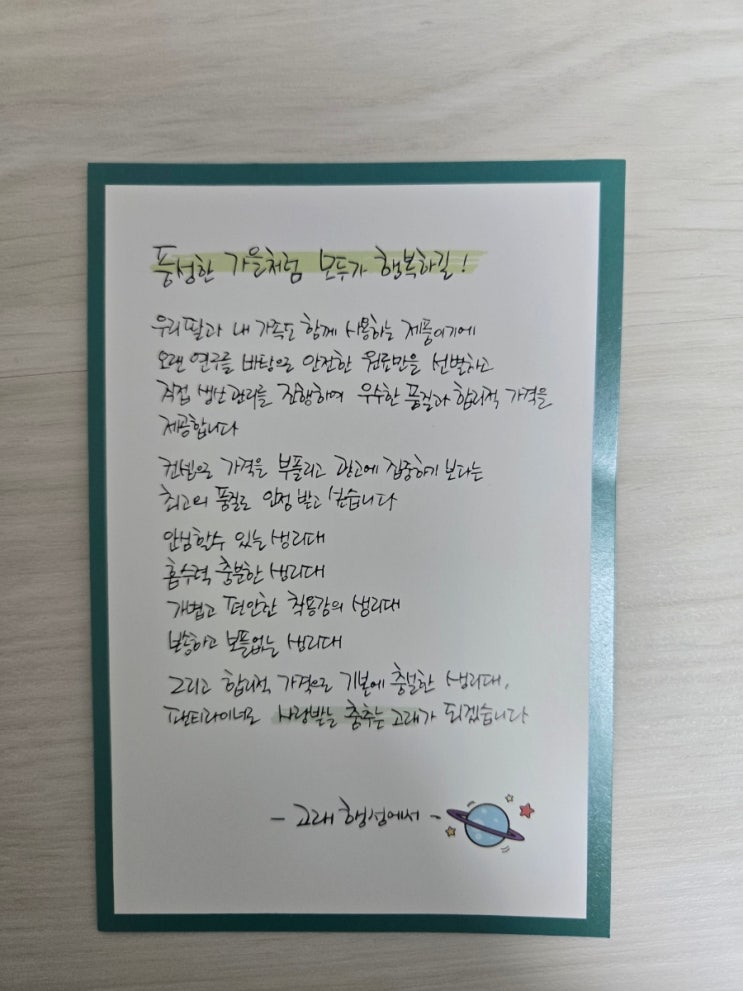 풍성한 가을처럼 모두가 행복하길!
우리 딸과 내 가족도 함께 사용하는 제품이기에
오랜 연구를 바탕으로 안전한 원료만을 선별하고
직접 생산관리를 진행하여 우수한 품질과 합리적 가격을
제공합니다
컨셉으로 가격을 부풀리고 광고에 집중하기 보다는
최고의 품질로 인정 받고 싶습니다
안심할수 있는 생리대
흡수력 충분한 생리대
가볍고 편안한 착용감의 생리대
뽀송하고 보풀없는 생리대
그리고 합리적 가격으로 기본에 충실한 생리대,
팬티라이너로 사랑받는 춤추는 고래가 되겠습니다
- 고래 행성에서 -